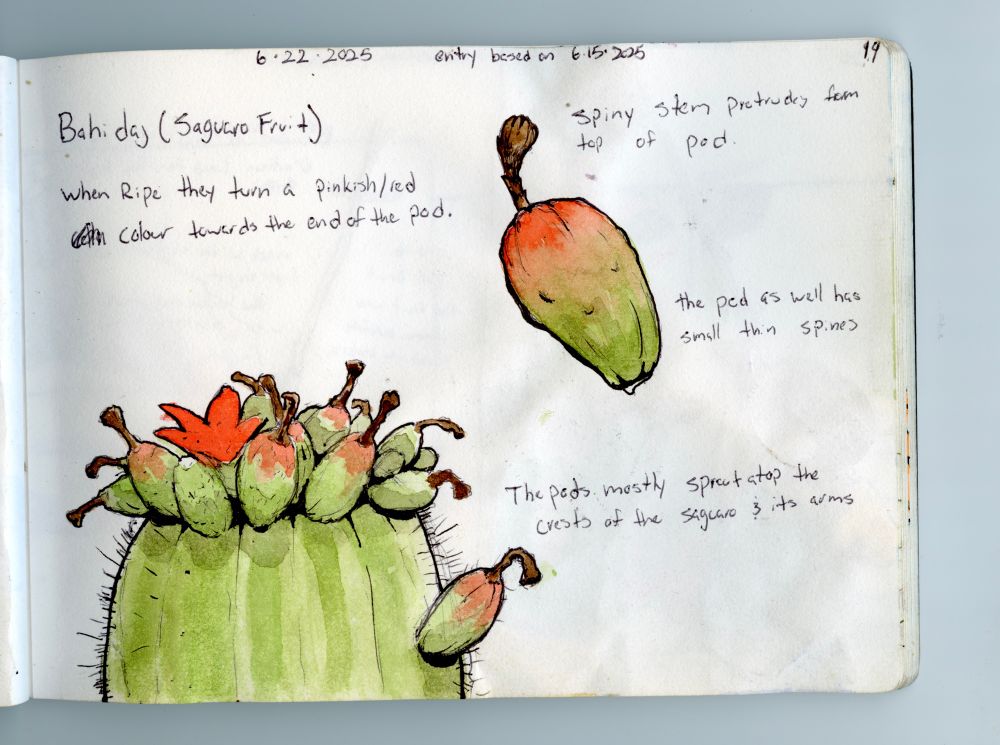 6·22·2025 entry based on 6·15·2025
19
Bahidaj (Saguaro Fruit)
when Ripe they turn a pinkish/red
colour towards the end of the pod.
Spiny stem protrudes from
top of pod.
the pod as well has
small thin spines
The pods mostly sprout atop the
crests of the saguaro & its arms